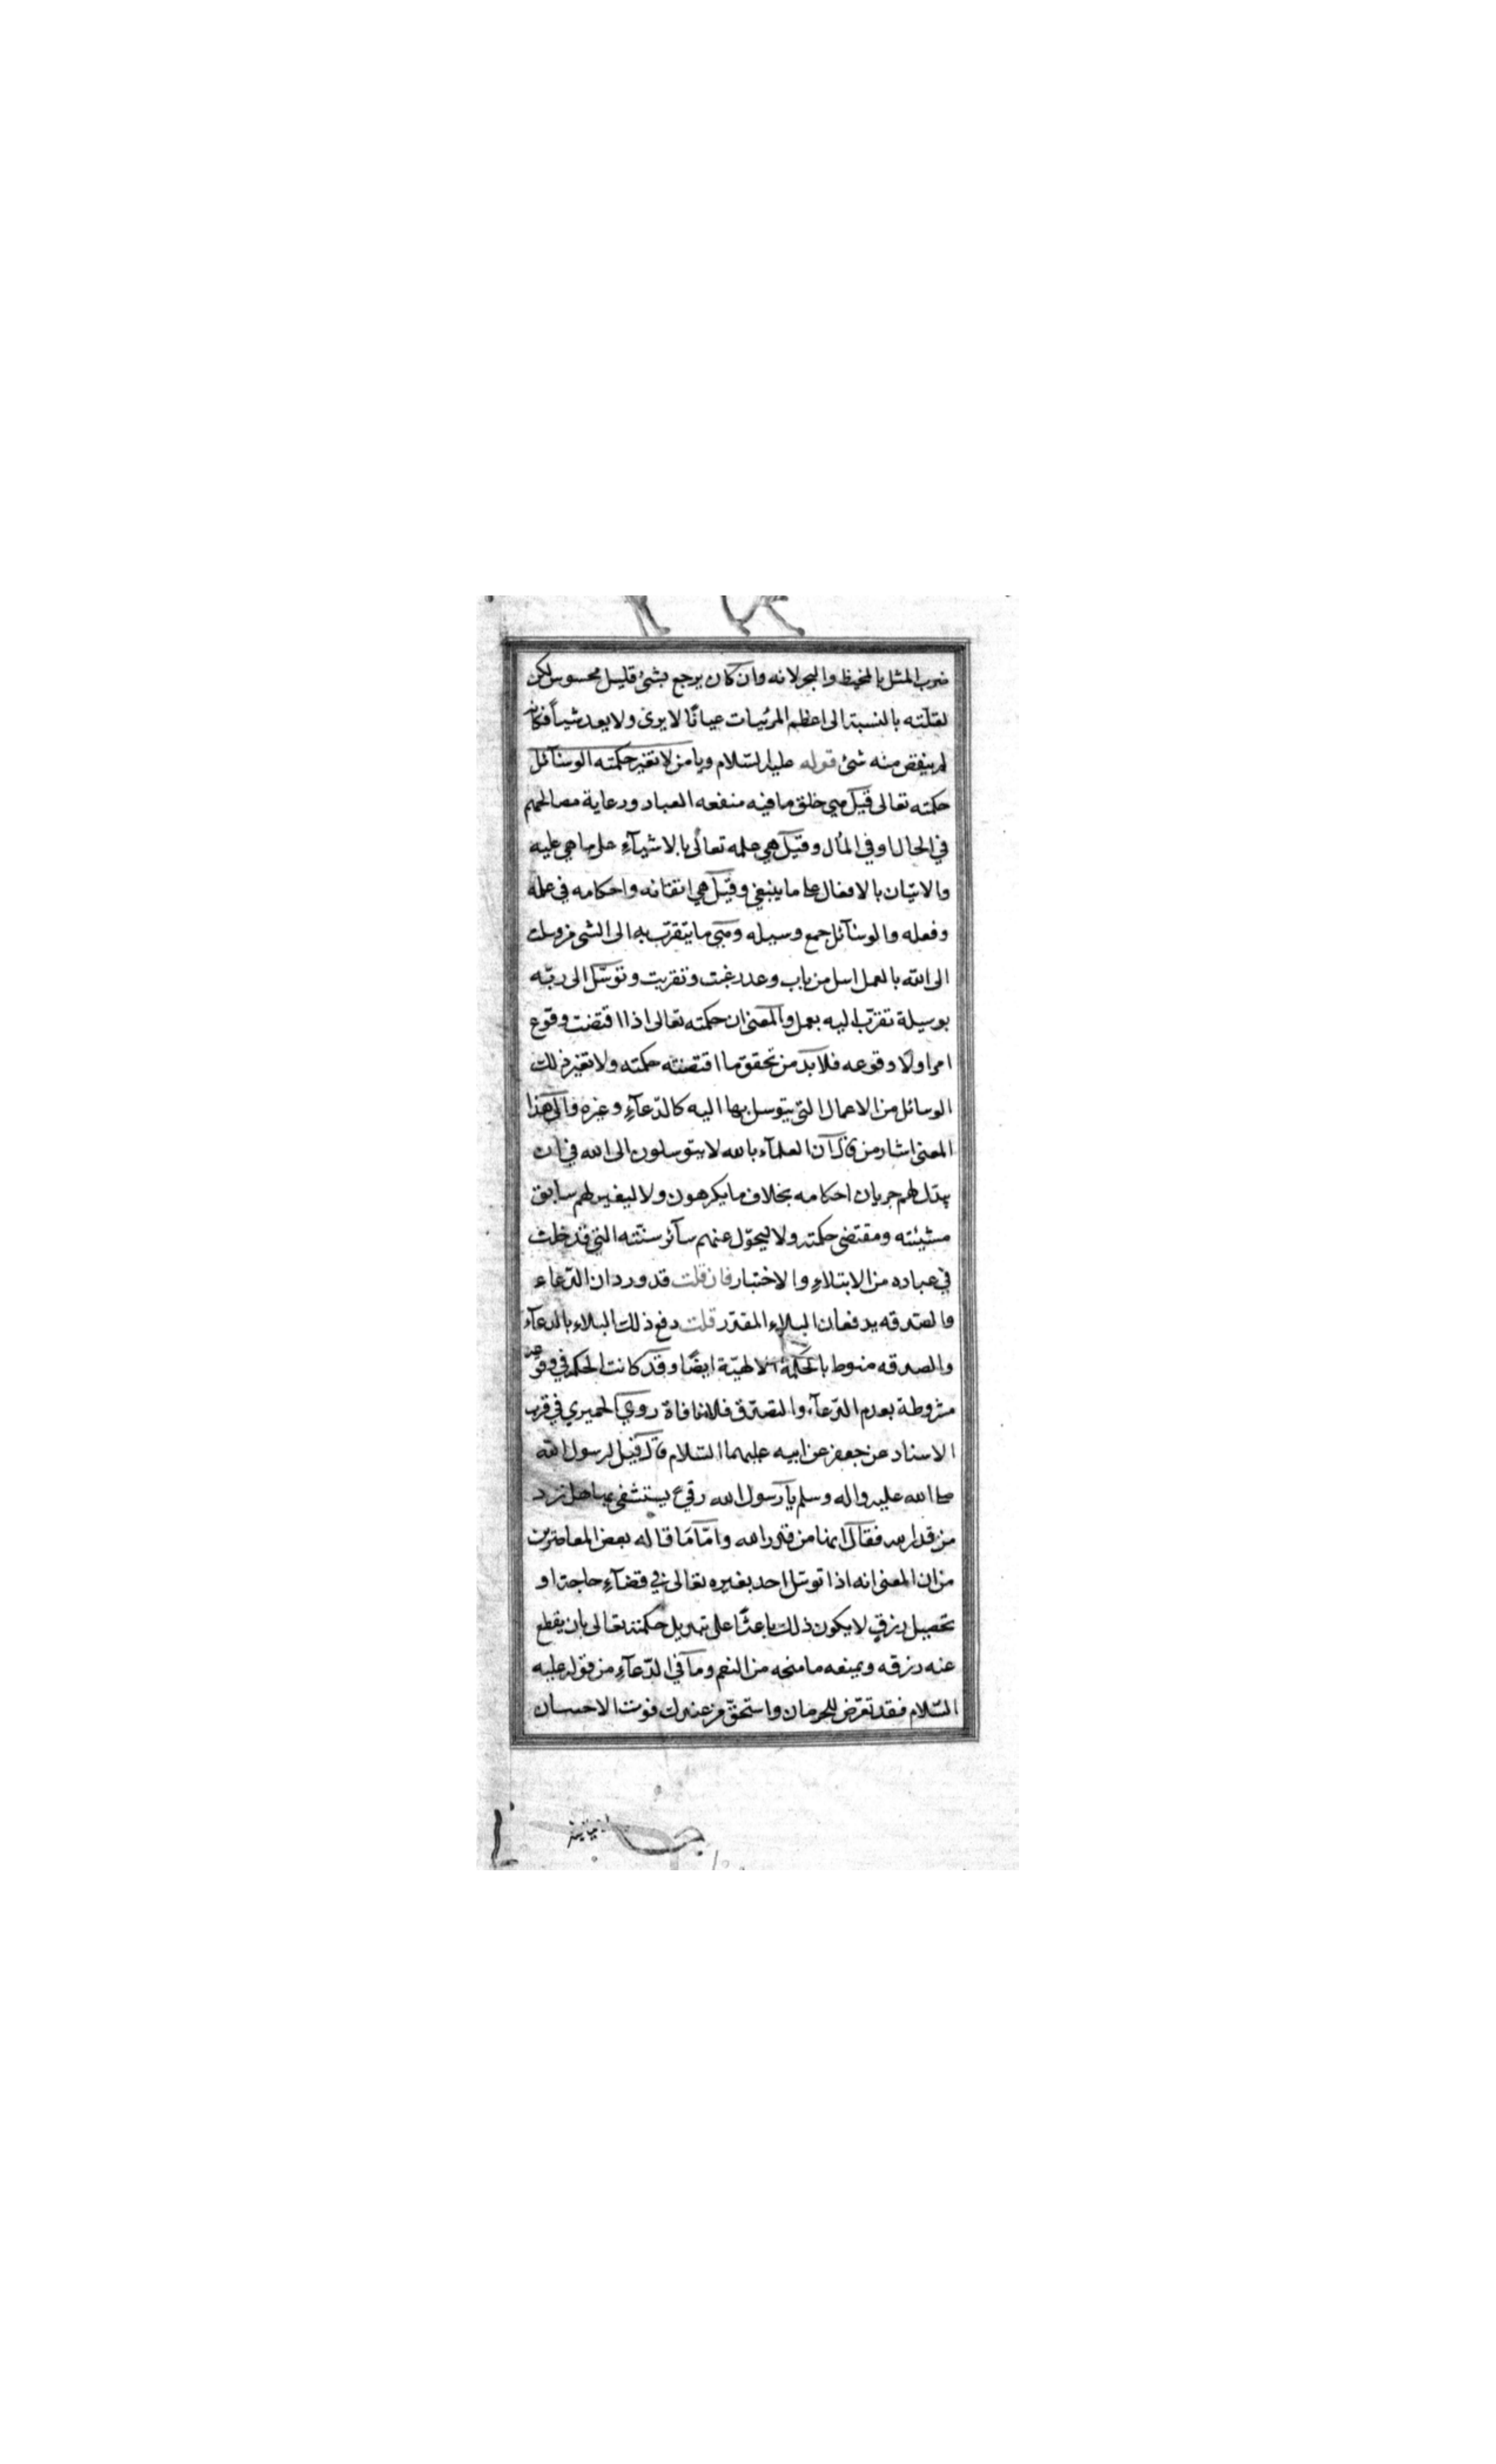 ضرب المثل بالمخيط والبحر لانه وان كان يرجع بشئ قليل محسوس لكن
لقلّته بالنسبة الى اعظم المرئيات عيانًا لا يرى ولا يعد شيأ فكانه
لم ينقص منه شئ قوله عليه السّلام ويا من لا تغيّر حكمته الوسآئل
حكمته تعالى قيل هي خلق ما فيه منفعه العباد ورعاية مصالحهم
في الحال او في المأل وقيل هي علمه تعالى بالاشيآء على ما هي عليه
والاتيان بالافعال على ما ينبغي وقيل هي اتقانه واحكامه في علمه
وفعله والوسآئل جمع وسيله وهي ما يتقرّب به الى الشي من وسلت
الى الله بالعمل اسل من باب وعد رغبت وتقربت وتوسّل الى ربّه
بوسيلة تقرّب اليه بعمل والمعنى ان حكمته تعالى اذا اقتضت وقوع
امر اولا وقوعه فلا بدّ من تحقق ما اقتضته حكمته ولا تغيّر ذلك
الوسائل من الاعمال التي يتوسل بها اليه كالدّعآء وغيره والى هذا
المعنى اشار من قال ان العلمآء بالله لا يتوسلون الى الله في ان
يبدّل لهم جريان احكامه بخلاف ما يكرهون ولا ليغير لهم سابق
مشيئته ومقتضى حكمته ولا ليحوّل عنهم سآئر سنّته التي قد خلت
في عباده من الابتلاء والاختبار فان قلت قد ورد ان الدّعاء
والصّدقه يدفعان البلاء المقدّر قلت دفع ذلك البلاء بالدعآء
والصدقه منوط بالحكمة الالهيّة ايضًا وقد كانت الحكمه في وقوعه
مشروطة بعدم الدّعآء والتصدّق فلا منافاة روى الحميري في قرب
الاسناد عن جعفر عن ابيه عليهما السّلام قال قيل لرسول الله
صلى الله عليه واله وسلم يا رسول الله رقى يستشفى بها هل ترد
من قدر الله فقال انها من قدر الله وامّا ما قاله بعض المعاصرين
من ان المعنى انه اذا توسّل احد بغيره تعالى في قضآء حاجة او
تحصيل رزق لا يكون ذلك باعثًا على تبديل حكمته تعالى بان يقطع
عنه رزقه ويمنعه ما منحه من النعم وما في الدّعآء من قوله عليه
السّلام فقد تعرّض للحرمان واستحقّ من عندك فوت الاحسان